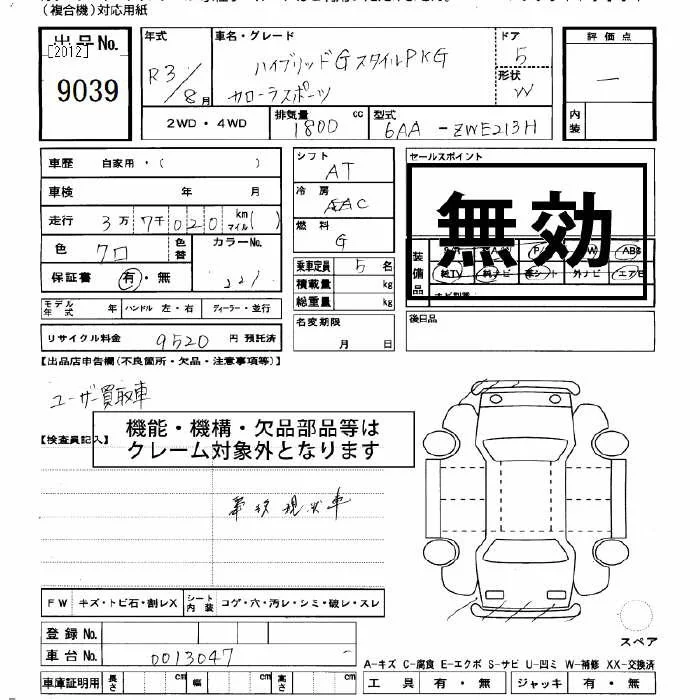 （複合機）対応用紙
出品No. [2012] 9039
年式 R3/8月
車名・グレード ハイブリッドGスタイルPKG カローラスポーツ
ドア 5
形状 W
評価点 —
内装
2WD・4WD
排気量 1800 cc
型式 6AA-ZWE213H
車歴 自家用・( )
車検 年 月
走行 3万7千020 km マイル( )
色 クロ
色替
カラーNo. 221
保証書 有・無
モデル年式 年 ハンドル 左・右 ディーラー・並行
リサイクル料金 9520 円 預託済
シフト AT
冷房 AAC
燃料 G
乗車定員 5 名
積載量 kg
総重量 kg
名変期限 月 日
セールスポイント
無効
装備品
ABS
純TV ナビ 革シート 外ナビ エアB
後日品
【出品店申告欄(不良箇所・欠品・注意事項等)】
ユーザー買取車
【検査員記入】
機能・機構・欠品部品等は
クレーム対象外となります
事故現状車
FW キズ・トビ石・割レX シート内装 コゲ・穴・汚レ・シミ・破レ・スレ
登録No.
車台No. 0013047
車庫証明用 長さ cm 幅 cm 高さ cm
スペア
A-キズ C-腐食 E-エクボ S-サビ U-凹ミ W-補修 XX-交換済
工具 有・無 ジャッキ 有・無